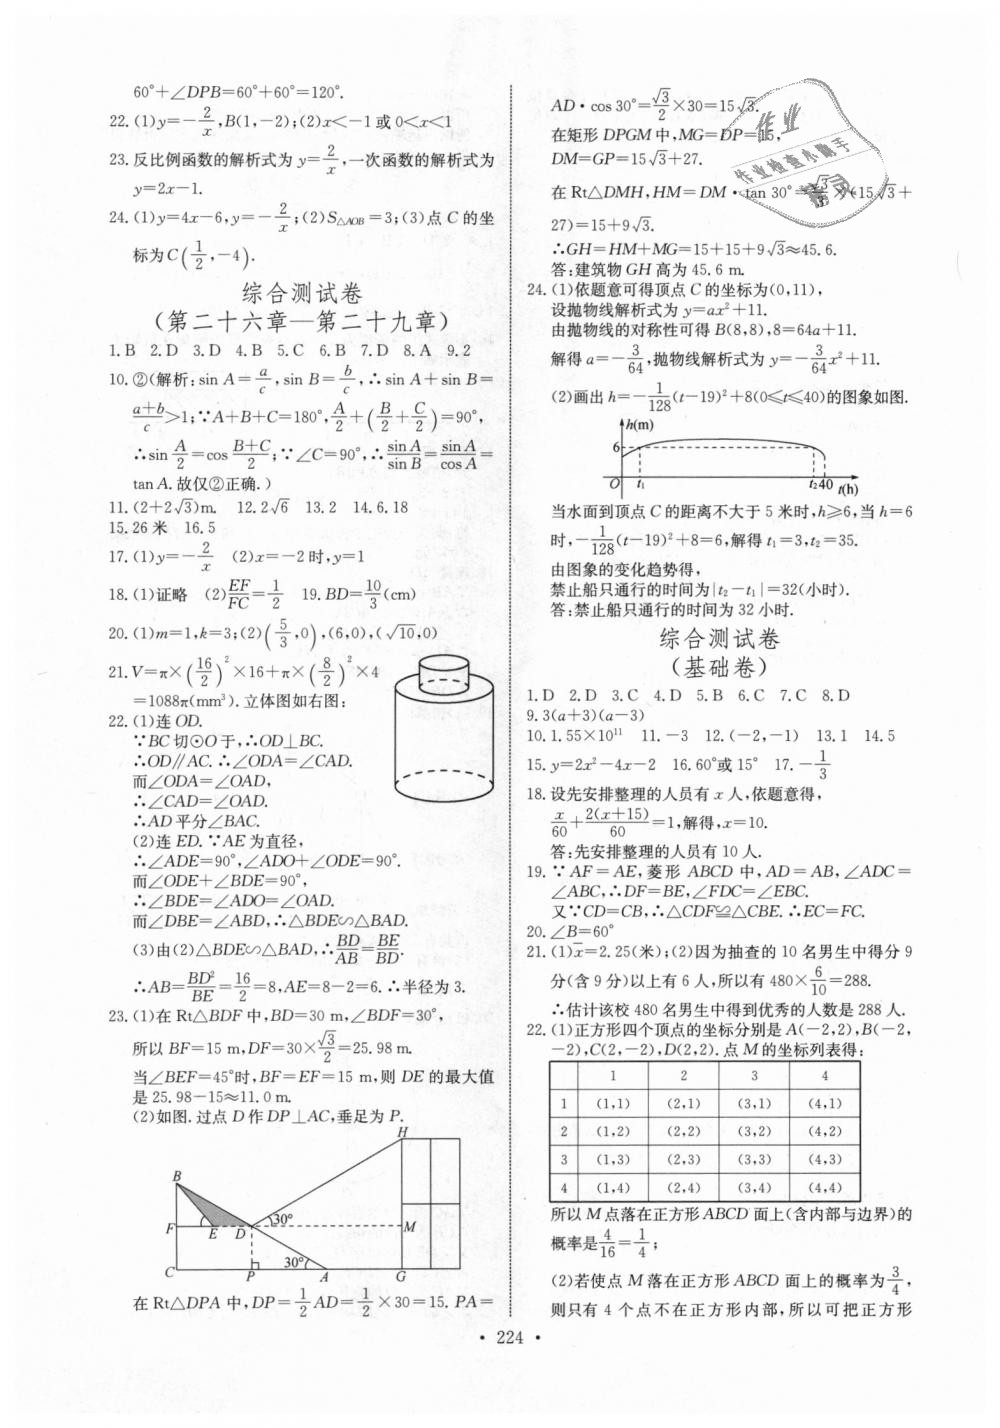 60°+∠DPB=60°+60°=120°.
22.(1)y=-2/x,B(1,-2);(2)x<-1或0<x<1
23.反比例函数的解析式为y=2/x,一次函数的解析式为
y=2x-1.
24.(1)y=4x-6,y=-2/x;(2)S△AOB=3;(3)点C的坐
标为C(1/2,-4).
综合测试卷
(第二十六章—第二十九章)
1.B 2.D 3.D 4.B 5.C 6.B 7.D 8.A 9.2
10.②(解析:sin A=a/c,sin B=b/c,∴sin A+sin B=
(a+b)/c>1;∵A+B+C=180°,A/2+(B/2+C/2)=90°,
∴sin A/2=cos (B+C)/2;∵∠C=90°,∴sin A/sin B=sin A/cos A=
tan A.故仅②正确.)
11.(2+2√3)m. 12.2√6 13.2 14.6.18
15.26米 16.5
17.(1)y=-2/x (2)x=-2时,y=1
18.(1)证略 (2)EF/FC=1/2 19.BD=10/3(cm)
20.(1)m=1,k=3;(2)(5/3,0),(6,0),(√10,0)
21.V=π×(16/2)²×16+π×(8/2)²×4
=1088π(mm³).立体图如右图:
22.(1)连OD.
∵BC切⊙O于,∴OD⊥BC.
∴OD∥AC.∴∠ODA=∠CAD.
而∠ODA=∠OAD,
∴∠CAD=∠OAD.
∴AD平分∠BAC.
(2)连ED.∵AE为直径,
∴∠ADE=90°,∠ADO+∠ODE=90°.
而∠ODE+∠BDE=90°,
∴∠BDE=∠ADO=∠OAD.
而∠DBE=∠ABD,∴△BDE∽△BAD.
(3)由(2)△BDE∽△BAD,∴BD/AB=BE/BD.
∴AB=BD²/BE=16/2=8,AE=8-2=6.∴半径为3.
23.(1)在Rt△BDF中,BD=30 m,∠BDF=30°,
所以BF=15 m,DF=30×√3/2=25.98 m.
当∠BEF=45°时,BF=EF=15 m,则DE的最大值
是25.98-15≈11.0 m.
(2)如图.过点D作DP⊥AC,垂足为P.
H
B
F E D 30° M
C P 30° A G
在Rt△DPA中,DP=1/2AD=1/2×30=15. PA=
AD·cos 30°=√3/2×30=15√3.
在矩形DPGM中,MG=DP=15,
DM=GP=15√3+27.
在Rt△DMH,HM=DM·tan 30°=√3/3×(15√3+
27)=15+9√3.
∴GH=HM+MG=15+15+9√3≈45.6.
答:建筑物GH高为45.6 m.
24.(1)依题意可得顶点C的坐标为(0,11),
设抛物线解析式为y=ax²+11.
由抛物线的对称性可得B(8,8),8=64a+11.
解得a=-3/64,抛物线解析式为y=-3/64x²+11.
(2)画出h=-1/128(t-19)²+8(0≤t≤40)的图象如图.
h(m)
6
O t₁ t₂ 40 t(h)
当水面到顶点C的距离不大于5米时,h≥6,当h=6
时,-1/128(t-19)²+8=6,解得t₁=3,t₂=35.
由图象的变化趋势得,
禁止船只通行的时间为|t₂-t₁|=32(小时).
答:禁止船只通行的时间为32小时.
综合测试卷
(基础卷)
1.D 2.D 3.C 4.D 5.B 6.C 7.C 8.D
9.3(a+3)(a-3)
10.1.55×10¹¹ 11.-3 12.(-2,-1) 13.1 14.5
15.y=2x²-4x-2 16.60°或15° 17.-1/3
18.设先安排整理的人员有x人,依题意得,
x/60+2(x+15)/60=1,解得,x=10.
答:先安排整理的人员有10人.
19.∵AF=AE,菱形ABCD中,AD=AB,∠ADC=
∠ABC,∴DF=BE,∠FDC=∠EBC.
又∵CD=CB,∴△CDF≌△CBE.∴EC=FC.
20.∠B=60°
21.(1)x̄=2.25(米);(2)因为抽查的10名男生中得分9
分(含9分)以上有6人,所以有480×6/10=288.
∴估计该校480名男生中得到优秀的人数是288人.
22.(1)正方形四个顶点的坐标分别是A(-2,2),B(-2,
-2),C(2,-2),D(2,2).点M的坐标列表得:
1 2 3 4
1 (1,1) (2,1) (3,1) (4,1)
2 (1,2) (2,2) (3,2) (4,2)
3 (1,3) (2,3) (3,3) (4,3)
4 (1,4) (2,4) (3,4) (4,4)
所以M点落在正方形ABCD面上(含内部与边界)的
概率是4/16=1/4;
(2)若使点M落在正方形ABCD面上的概率为3/4,
则只有4个点不在正方形内部,所以可把正方形
• 224 •
作业
作业检查小助手